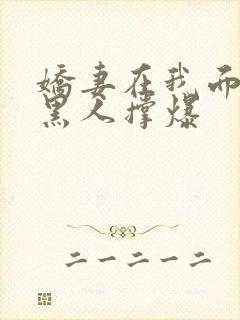 娇妻在我面
黑人撑爆
二一二一二